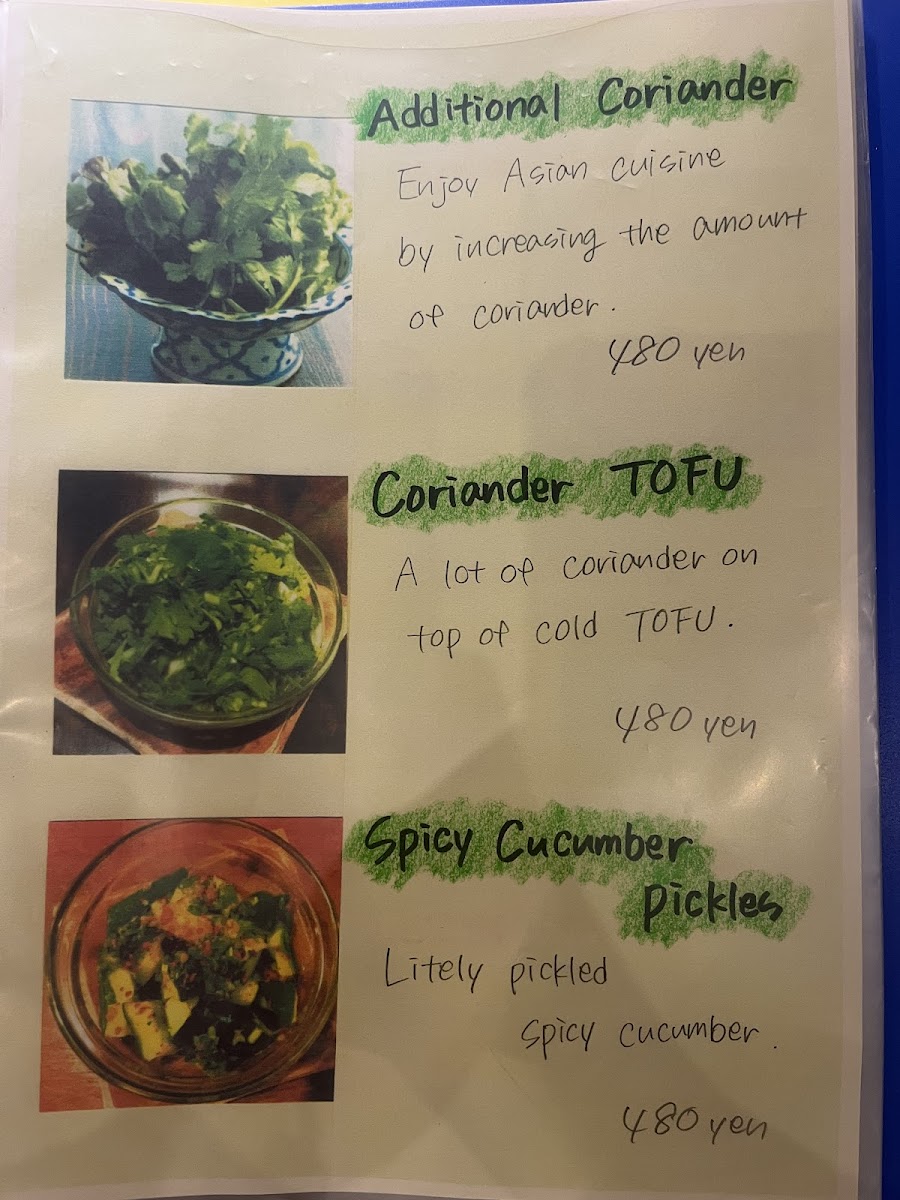 Additional Coriander
Enjoy Asian cuisine
by increasing the amount
of coriander.
480 yen
Coriander TOFU
A lot of coriander on
top of cold TOFU.
480 yen
Spicy Cucumber
Pickles
Litely pickled
spicy cucumber.
480 yen